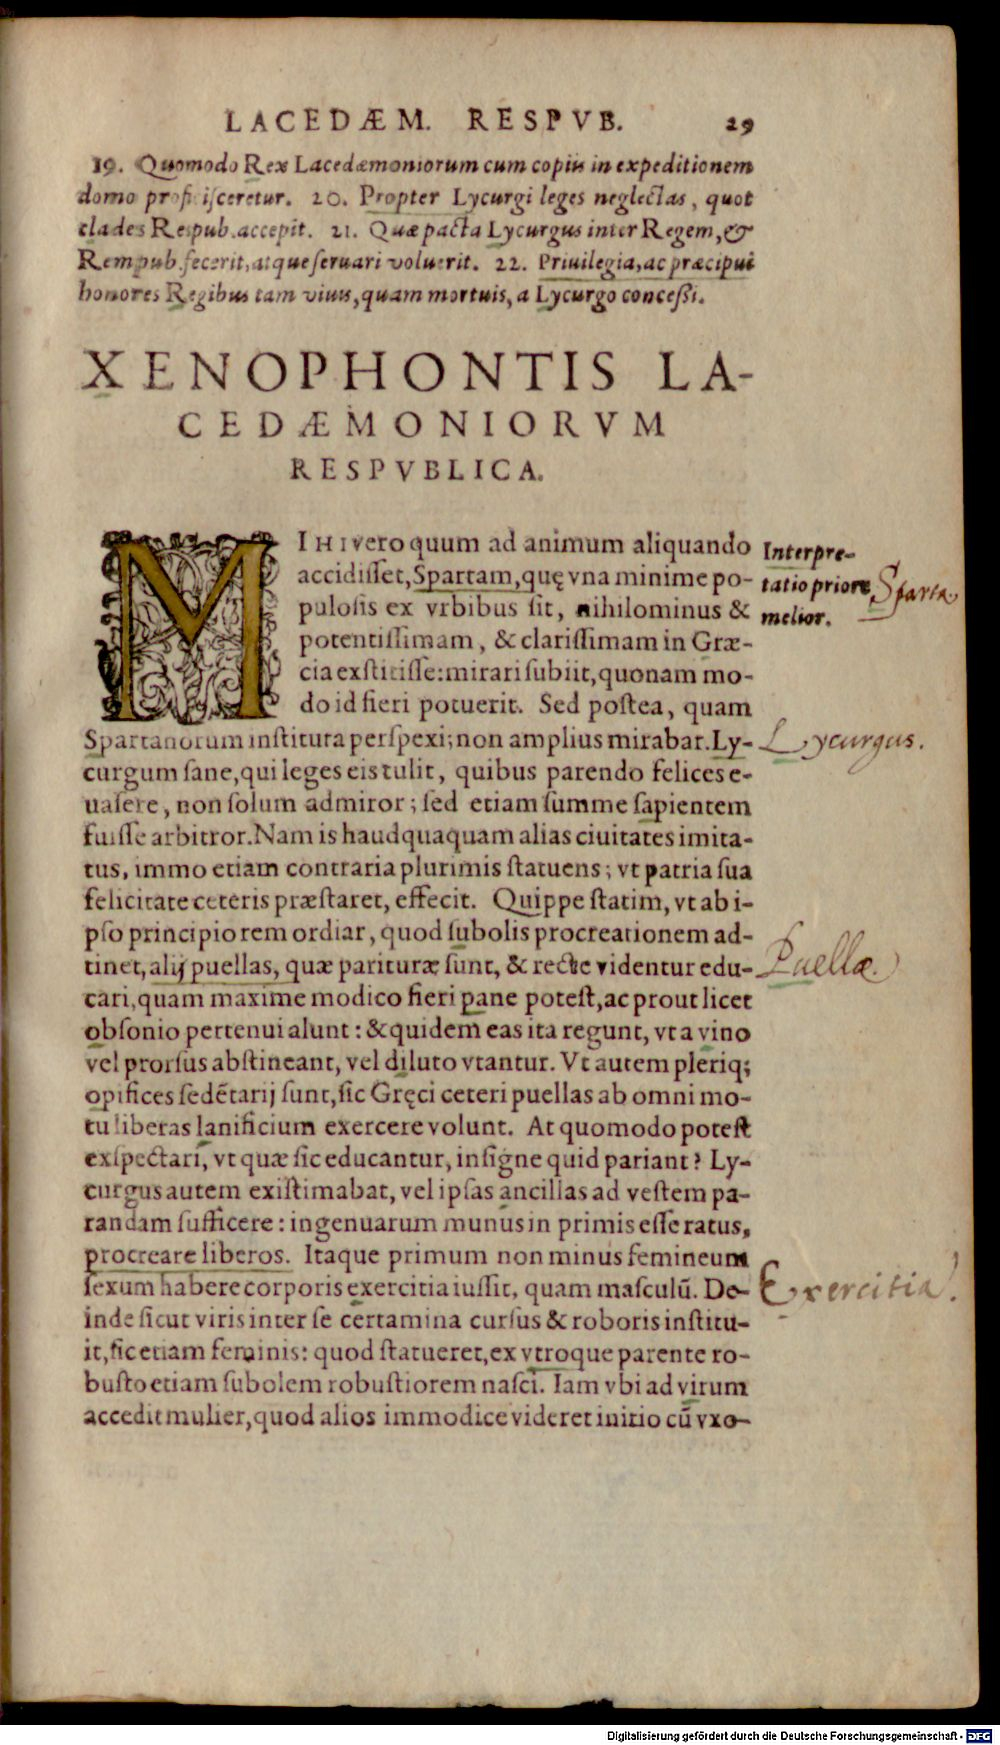 LACEDÆM. RESPVB. 29
19. Quomodo Rex Lacedæmoniorum cum copiis in expeditionem
domo proficisceretur. 20. Propter Lycurgi leges neglectas, quot
clades Respub. accepit. 21. Quæ pacta Lycurgus inter Regem, &
Rempub. fecerit, atque seruari voluerit. 22. Priuilegia, ac præcipui
honores Regibus tam viuis, quam mortuis, a Lycurgo concessi.
XENOPHONTIS LA-
CEDÆMONIORVM
RESPVBLICA.
MIHI vero quum ad animum aliquando
accidisset, Spartam, quę vna minime po-
pulosis ex vrbibus sit, nihilominus &
potentissimam, & clarissimam in Græ-
cia exstitisse: mirari subiit, quonam mo-
do id fieri potuerit. Sed postea, quam
Interpre-
tatio priore
melior.
Sparta
Spartanorum instituta perspexi; non amplius mirabar. Ly-
Lycurgus.
curgum sane, qui leges eis tulit, quibus parendo felices e-
uasere, non solum admiror; sed etiam summe sapientem
fuisse arbitror. Nam is haudquaquam alias ciuitates imita-
tus, immo etiam contraria plurimis statuens; vt patria sua
felicitate ceteris præstaret, effecit. Quippe statim, vt ab i-
pso principio rem ordiar, quod subolis procreationem ad-
tinet, alij puellas, quæ parituræ sunt, & recte videntur edu-
Puellæ.
cari, quam maxime modico fieri pane potest, ac prout licet
obsonio pertenui alunt: & quidem eas ita regunt, vt a vino
vel prorsus abstineant, vel diluto vtantur. Vt autem pleriq;
opifices sedẽtarij sunt, sic Gręci ceteri puellas ab omni mo-
tu liberas lanificium exercere volunt. At quomodo potest
exspectari, vt quæ sic educantur, insigne quid pariant? Ly-
curgus autem existimabat, vel ipsas ancillas ad vestem pa-
randam sufficere: ingenuarum munus in primis esse ratus,
procreare liberos. Itaque primum non minus femineum
sexum habere corporis exercitia iussit, quam masculũ. De-
Exercitia.
inde sicut viris inter se certamina cursus & roboris institu-
it, sic etiam feminis: quod statueret, ex vtroque parente ro-
busto etiam subolem robustiorem nasci. Iam vbi ad virum
accedit mulier, quod alios immodice videret initio cũ vxo-
Digitalisierung gefördert durch die Deutsche Forschungsgemeinschaft - DFG